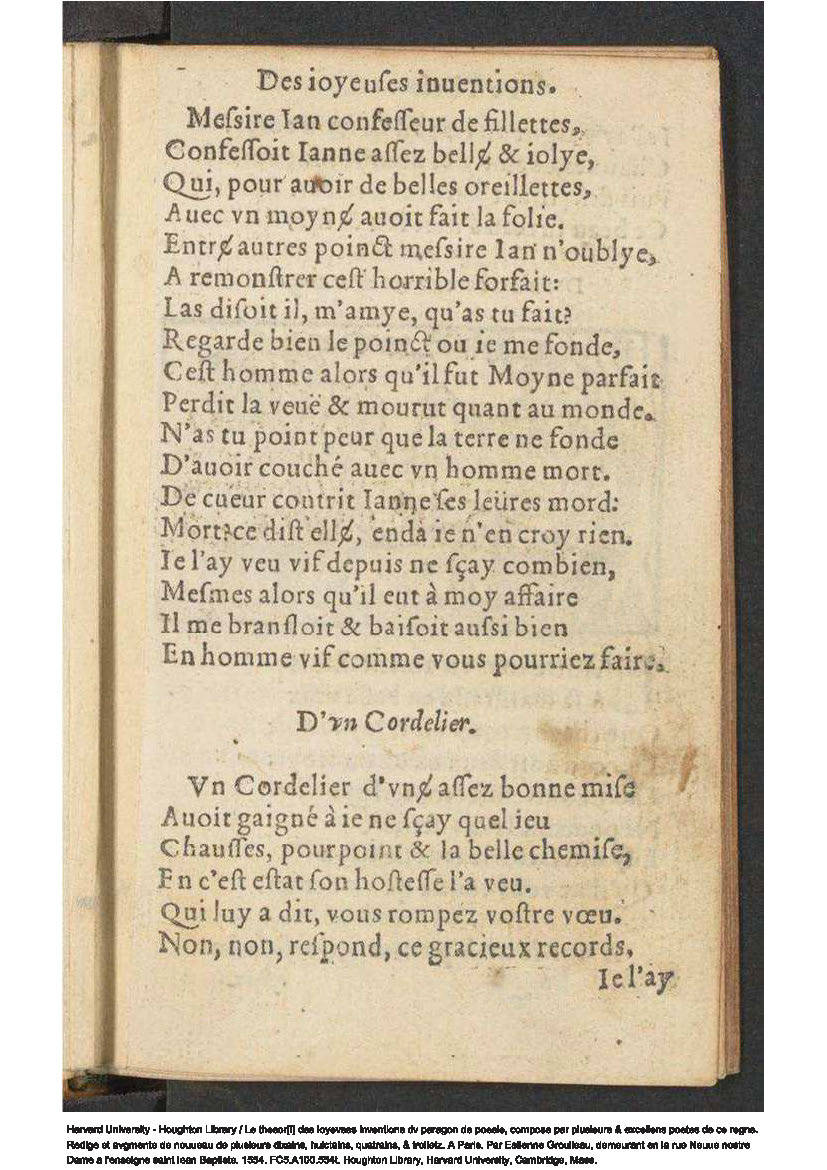 Des ioyeuſes inuentions.
Meſsire Ian confeſſeur de fillettes,
Confeſſoit Ianne aſſez bellɇ & iolye,
Qui, pour auoir de belles oreillettes,
Auec vn moynɇ auoit fait la folie.
Entrɇ autres poinct meſsire Ian n'oublye,
A remonſtrer ceſt horrible forfait:
Las diſoit il, m'amye, qu'as tu fait?
Regarde bien le poinct ou ie me fonde,
Ceſt homme alors qu'il fut Moyne parfait
Perdit la veuë & mourut quant au monde.
N'as tu point peur que la terre ne fonde
D'auoir couché auec vn homme mort.
De cueur contrit Ianne ſes leüres mord:
Mort?ce diſt ellɇ, enda ie n'en croy rien.
Ie l'ay veu vif depuis ne ſçay combien,
Meſmes alors qu'il eut à moy affaire
Il me branſloit & baiſoit auſsi bien
En homme vif comme vous pourriez faire.
D'vn Cordelier.
Vn Cordelier d'vnɇ aſſez bonne miſe
Auoit gaigné à ie ne ſçay quel ieu
Chauſſes, pourpoint & la belle chemiſe,
En c'eſt eſtat ſon hoſteſſe l'a veu.
Qui luy a dit, vous rompez voſtre vœu.
Non, non, reſpond, ce gracieux records,
Ie l'ay
Harvard University - Houghton Library / Le thesor[!] des ioyevses inventions dv paragon de poesie, compose par plusieurs & excellens poetes de ce regne.
Redige et avgmente de nouueau de plusieurs dixains, huictains, quatrains, & trolletz. A Paris. Par Estienne Groulleau, demeurant en la rue Neuue nostre
Dame a l'enseigne saint Iean Baptiste. 1554. FC5.A100.554t. Houghton Library, Harvard University, Cambridge, Mass.